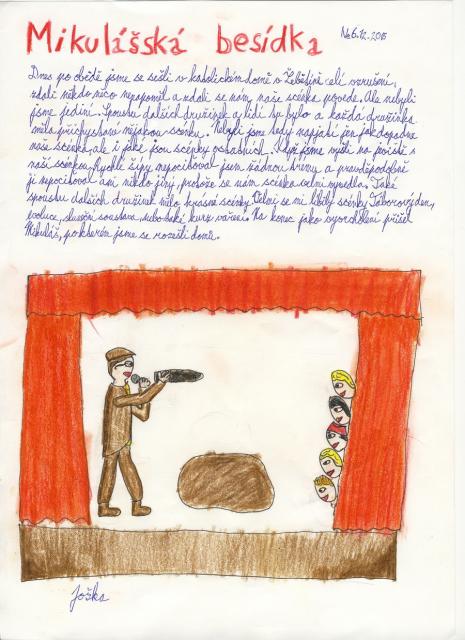 Mikulášská besídka
Ne 6.12.2015
Dnes po obědě jsme se sešli v katolickém domě v Žebětíně celí vzrušení,
zdali někdo něco nezapomněl a zdali se nám naše scénka povede. Ale nebyli
jsme jediní. Spoustu dalších družinek a lidí tu bylo a každá družinka
měla přichystanou nějakou scénku. Nebyli jsme tedy napjatí jen jak dopadne
naše scénka, ale i jaké jsou scénky ostatních. Když jsme vyšli na pódiu s
naší scénkou Rychlé šípy nepociťoval jsem žádnou trému a pravděpodobně
ji nepociťoval ani nikdo jiný, protože se nám scénka velmi vyvedla. Také
spoustu dalších družinek mělo krásné scénky. Velmi se mi líbily scénky Táborový den,
evoluce, sluneční soustava, nebo také kurz vaření. Na konec jako vyvrcholení přišel
Mikuláš, po kterém jsme se rozešli domů.
Joška